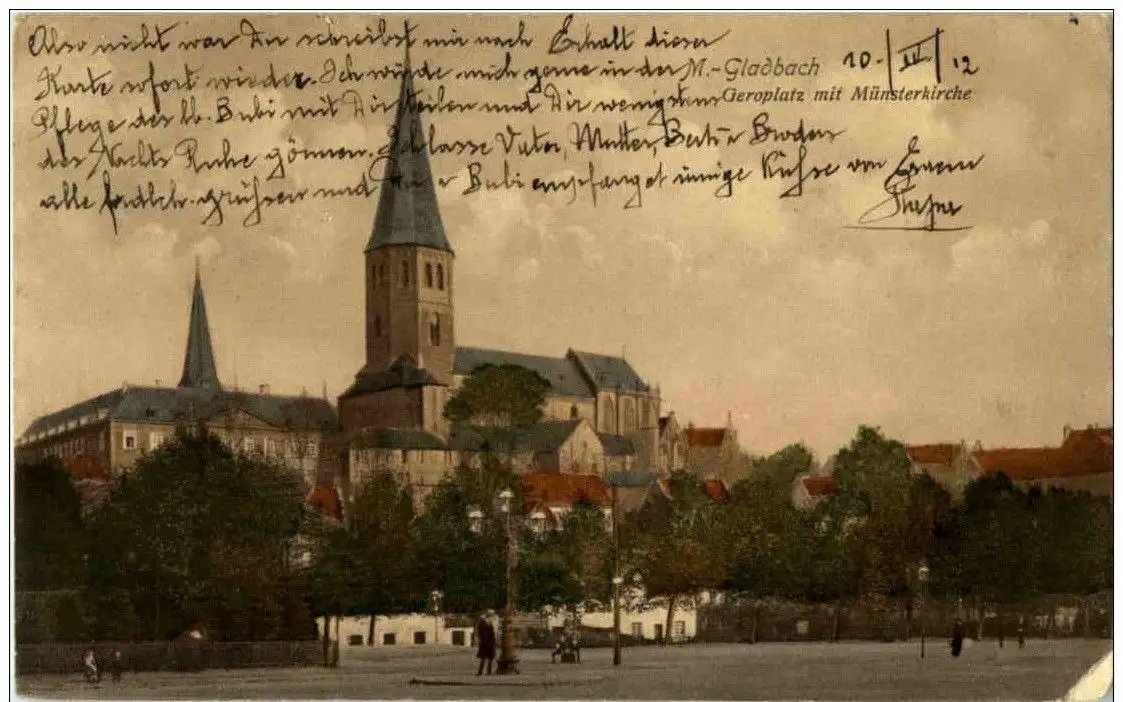 Also nicht war Du schreibst mir nach Erhalt dieser
Karte sofort wieder. Ich würde mich gerne in der
M.-Gladbach
10. III 12
Geroplatz mit Münsterkirche
Pflege des lb. Bubi mit Dir teilen und Dir wenigstens
des Nachts Ruhe gönnen. lasse Vater, Mutter, Bruder
alle frdlch. grüßen und Du Bubi empfanget innige Küsse von